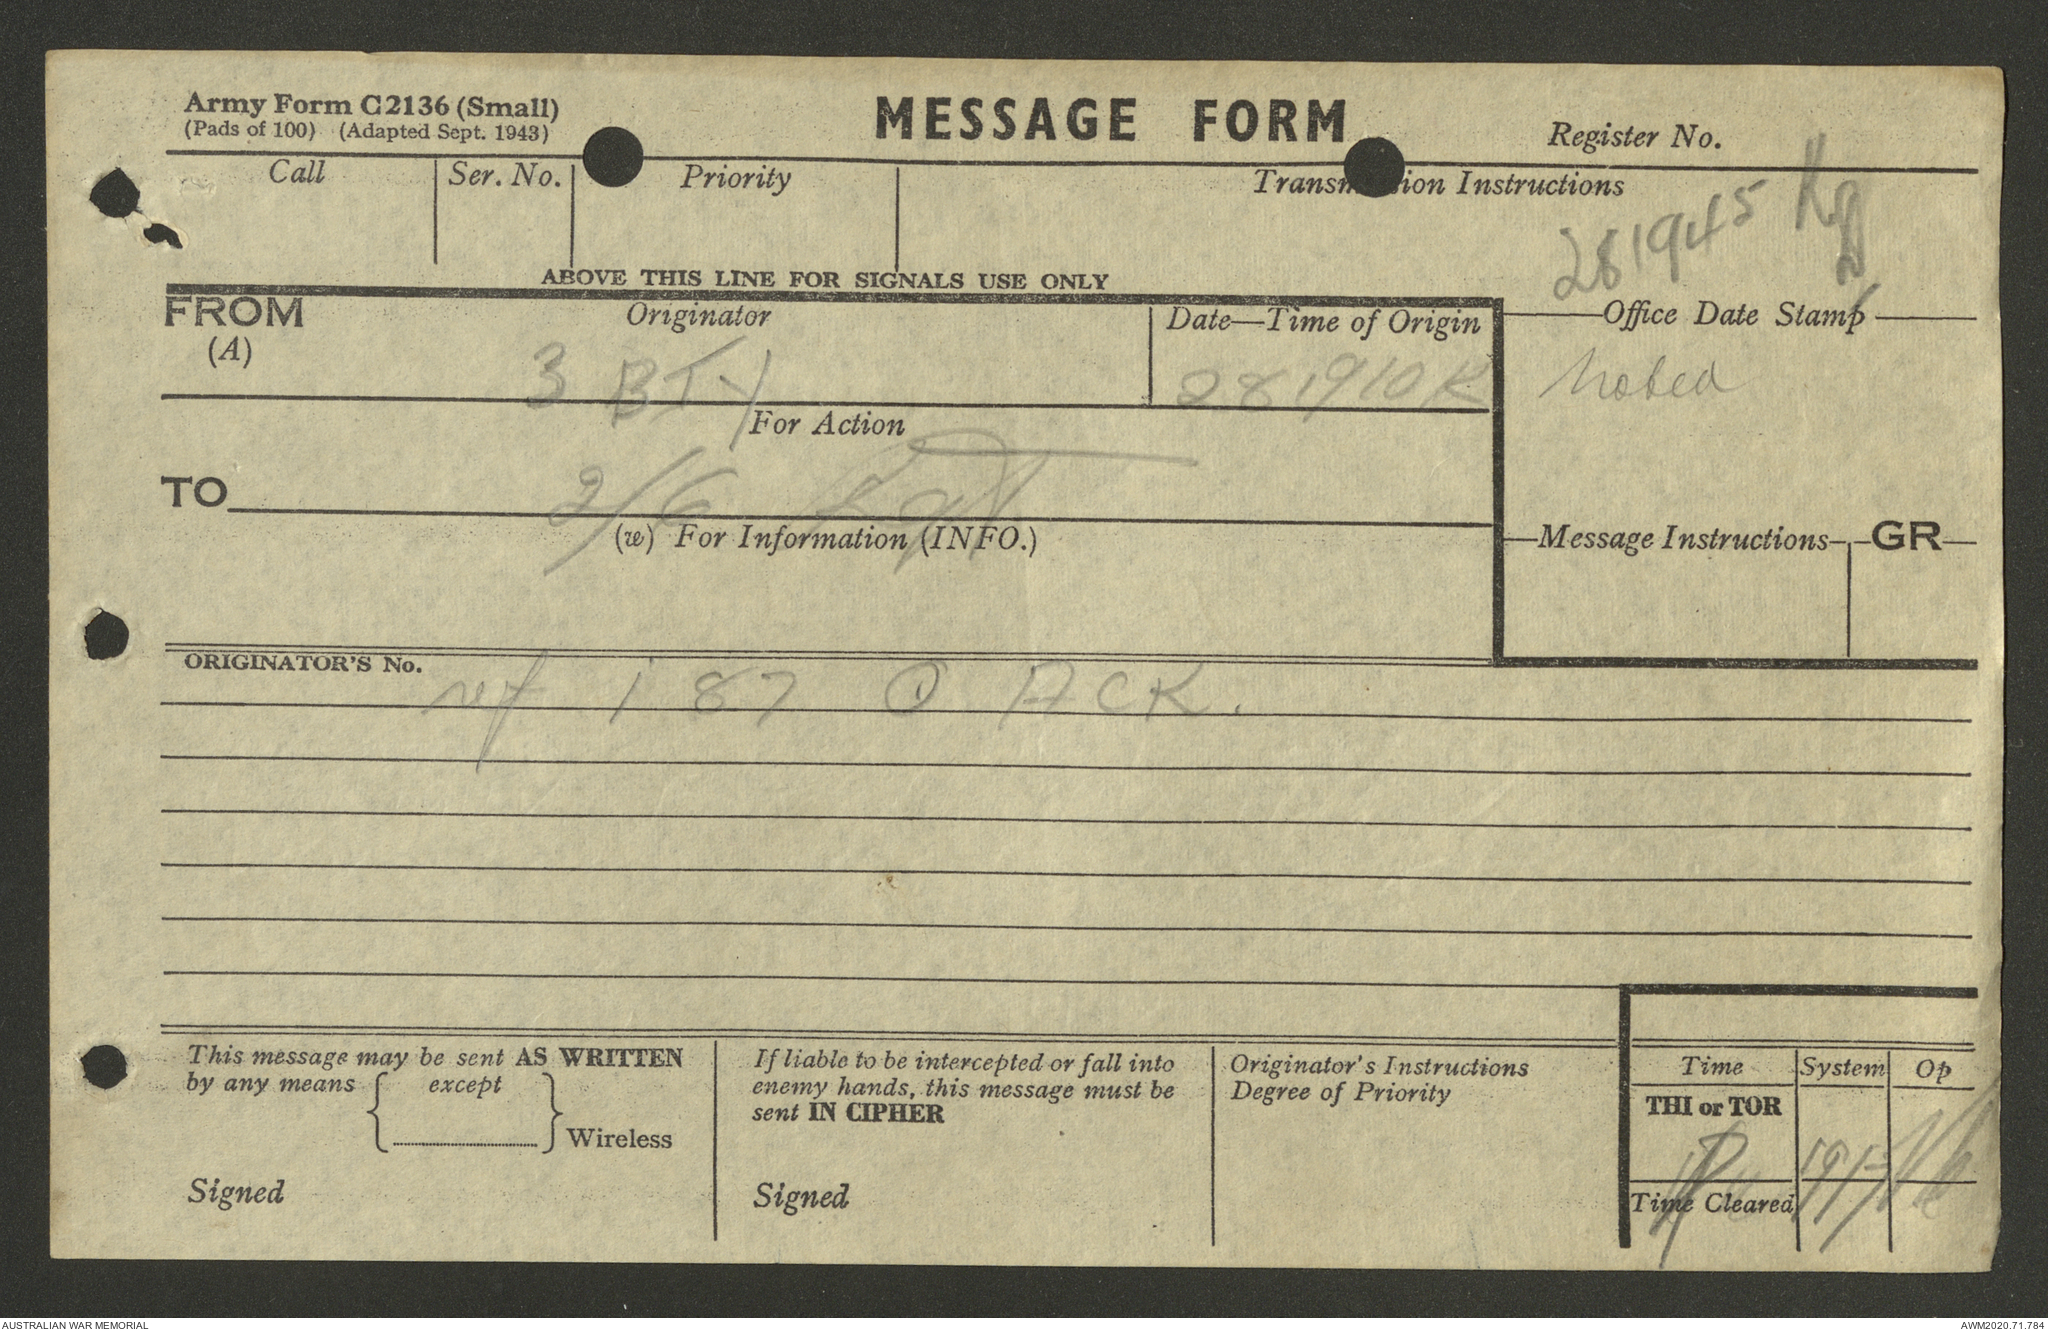 Army Form C2136 (Small)
(Pads of 100) (Adapted Sept. 1943)
MESSAGE FORM
Register No.
Call
Ser. No.
Priority
Instructions
281945 K
ABOVE THIS LINE FOR SIGNALS USE ONLY
FROM
(A)
Originator
3 BTY
Date—Time of Origin
281910K
Office Date Stamp
Noted
For Action
TO
2/6
(w) For Information (INFO.)
Message Instructions
GR
ORIGINATOR'S No.
ref 187 O ACK.
This message may be sent AS WRITTEN
by any means { except
} Wireless
Signed
If liable to be intercepted or fall into
enemy hands, this message must be
sent IN CIPHER
Signed
Originator's Instructions
Degree of Priority
Time
System
Op
THI or TOR
Time Cleared
AUSTRALIAN WAR MEMORIAL
AWM2020.71.784